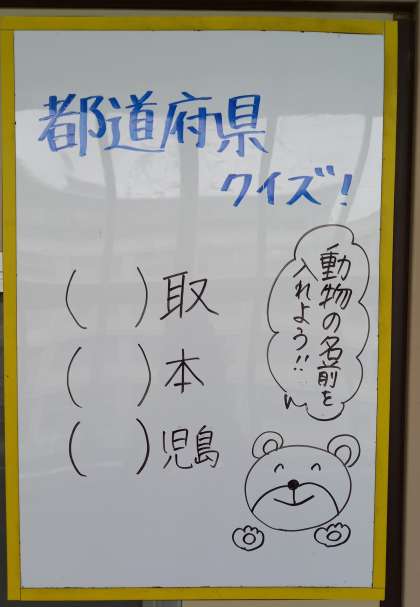 都道府県
クイズ!
(　　)取
(　　)本
(　　)児島
動物の名前を
入れよう!!